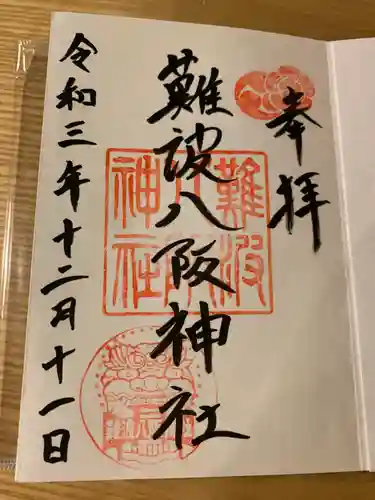 奉拝
難波八阪神社
難波
八阪
神社
令和三年十二月十一日